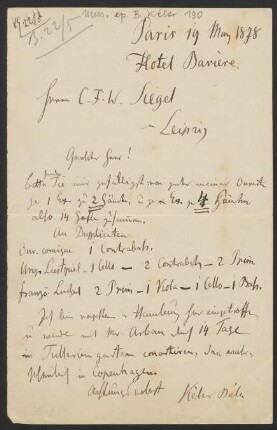 Mus. ep. B. Kéler 190
B. 22/5
Paris 19 May 1878
Hotel Bavière.
Herrn C. F. W. Siegel
Leipzig
Geehrter Herr!
Sie mir gefälligst von meiner
je 1 Ex. zu 2 Händen, u. je 1 Ex. zu 4 Händen
also 14 Hefte zusammen.
An Duplicaten
Ouv. comique 1 Contrabass.
Ung. Lustspiel 1 Cello — 2 Contrabass — 2 Prim
Französ. Lustsp. 2 Prim — 1 Viola — 1 Cello — 1 Bass.
Ich bin von Hamburg hier eingetroffen
u. werde mit Mr. Arban auf 14 Tage
im Tuilleriengarten concertiren, dann
in Copenhagen.
Achtungsvollst Kéler Béla